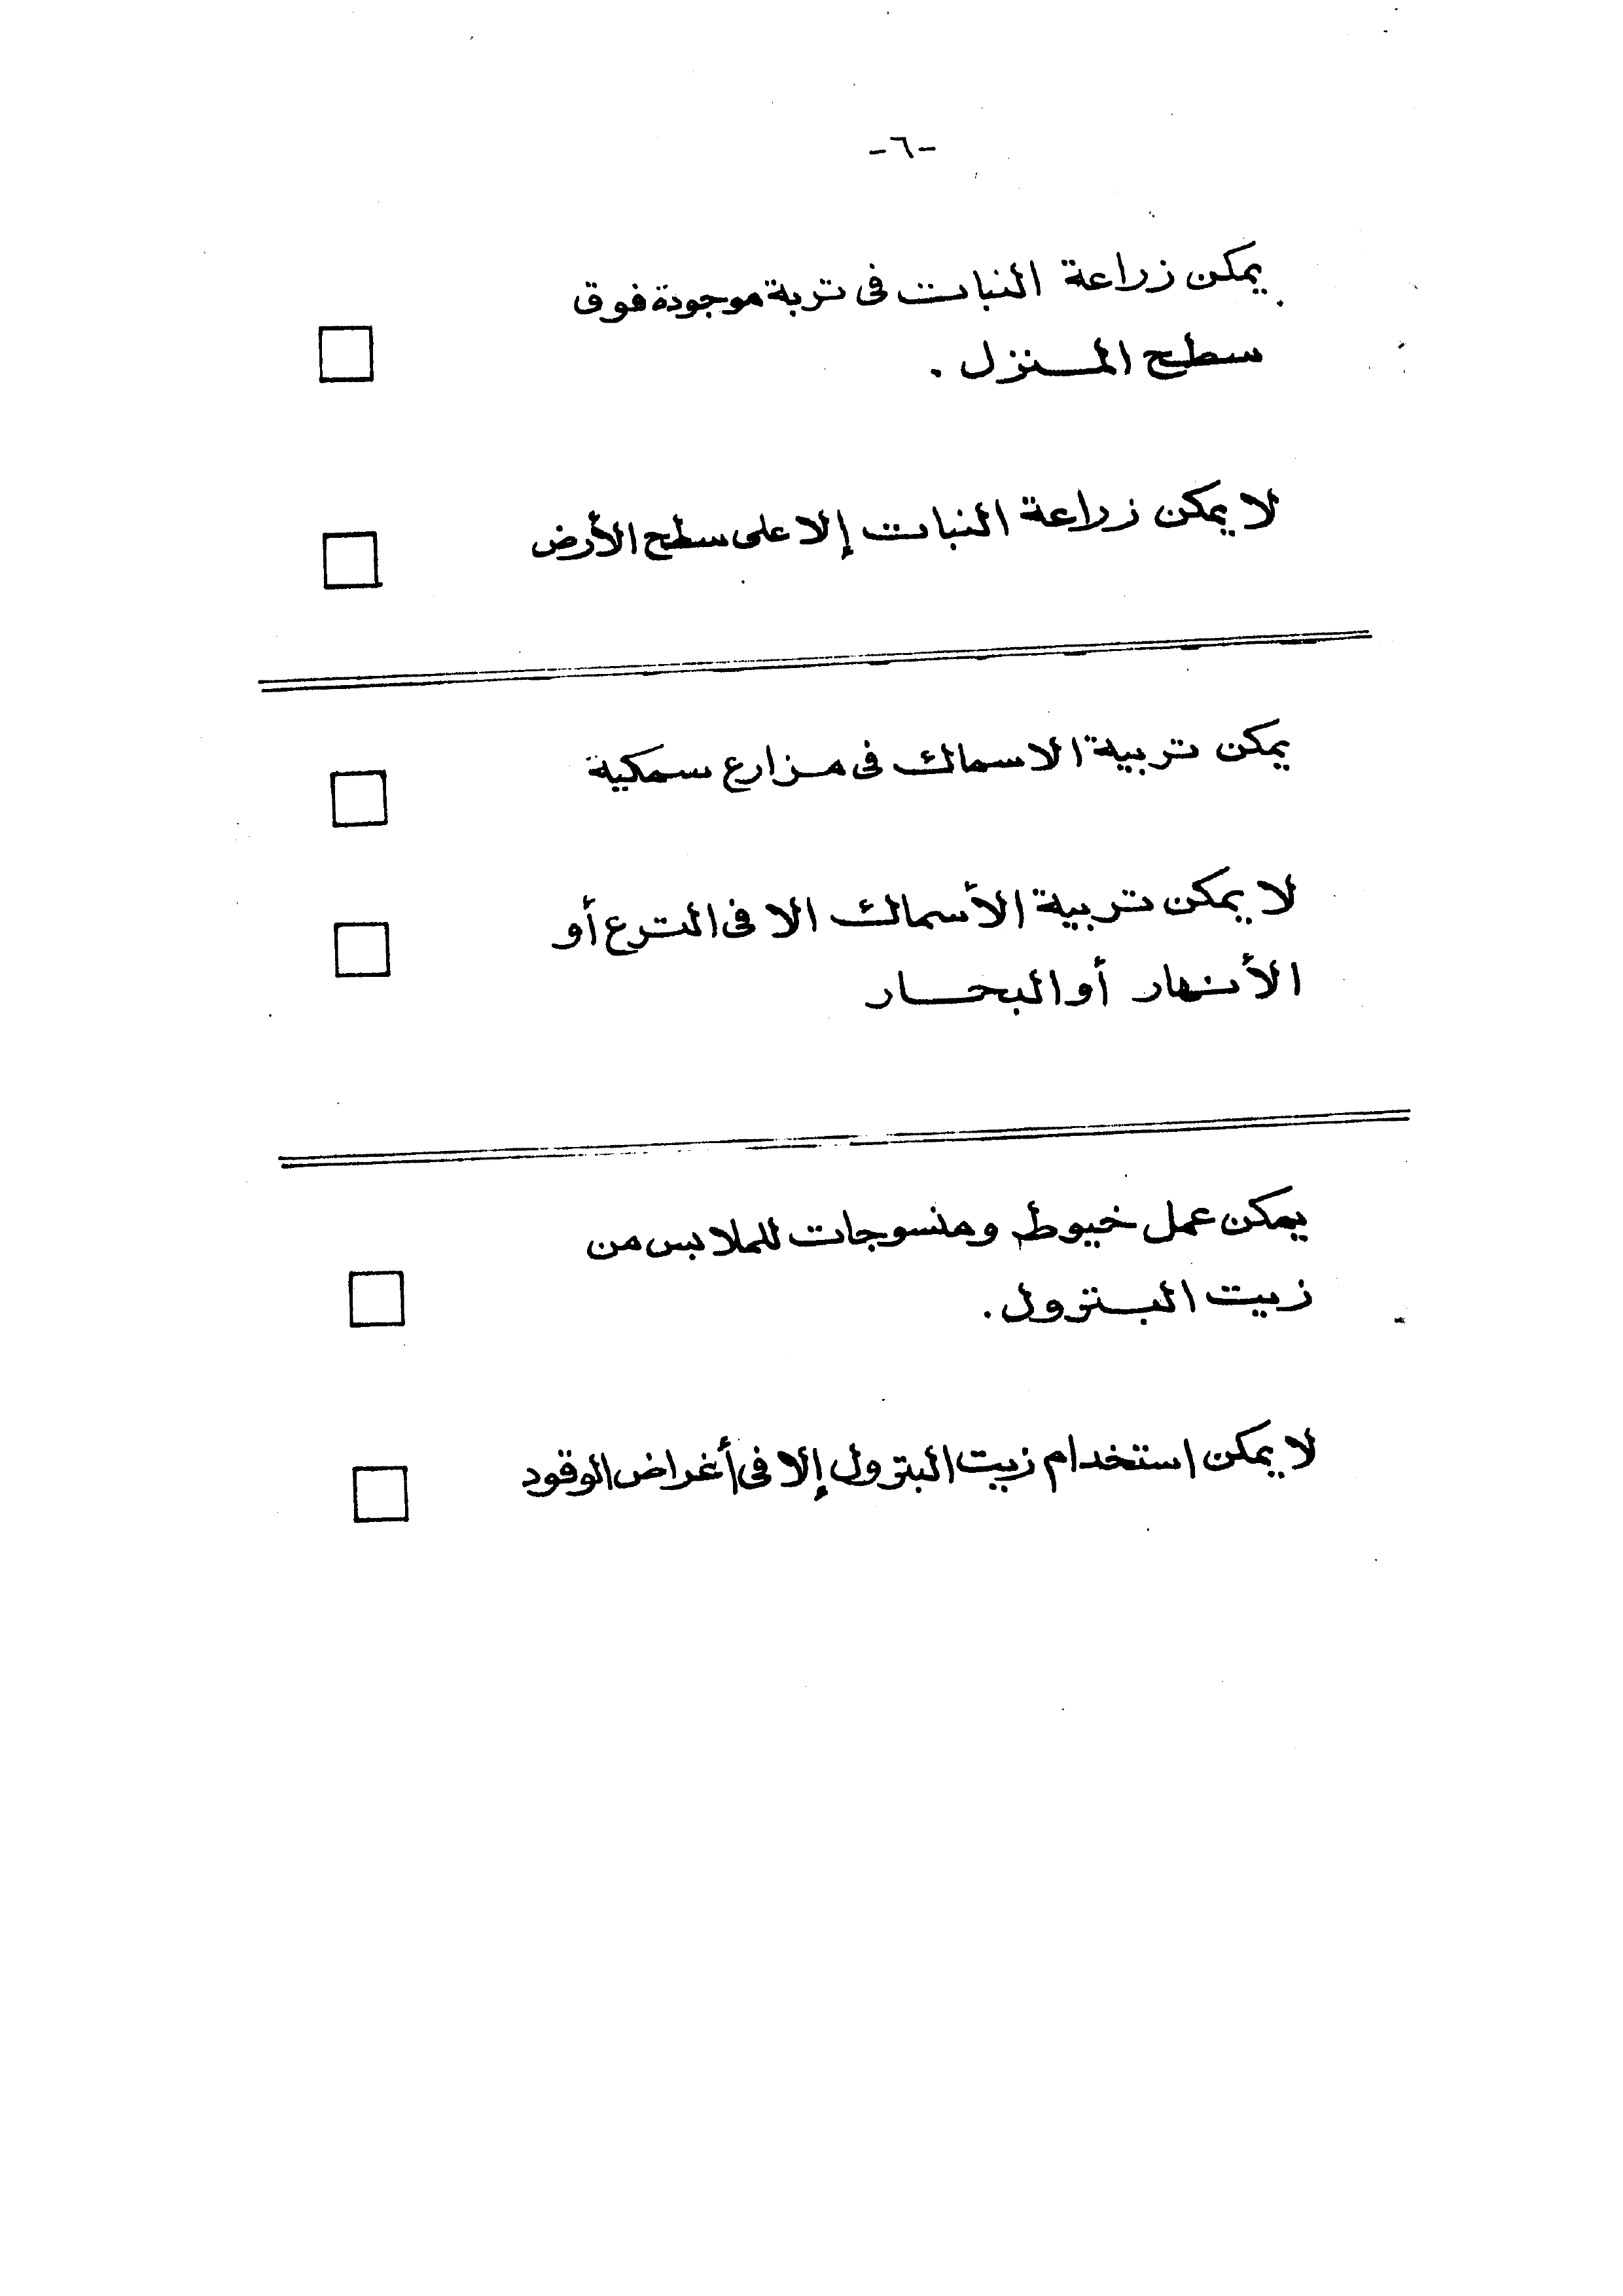 -٦-
يمكن زراعة النبات فى تربة موجودة فوق
سطح المنزل .
لا يمكن زراعة النبات إلا على سطح الأرض
يمكن تربية الاسماك فى مزارع سمكية
لا يمكن تربية الأسماك الا فى الترع أو
الأنهار أو البحار
يمكن عمل خيوط ومنسوجات للملابس من
زيت البترول .
لا يمكن استخدام زيت البترول إلا فى أغراض الوقود